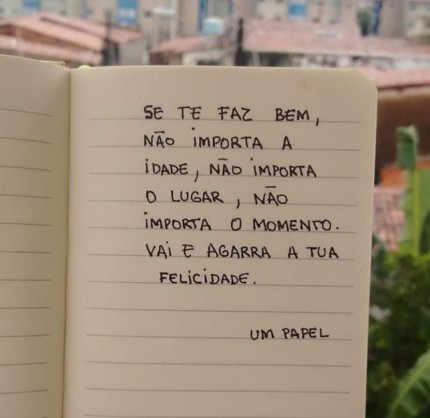 SE TE FAZ BEM,
NÃO IMPORTA A
IDADE, NÃO IMPORTA
O LUGAR, NÃO
IMPORTA O MOMENTO.
VAI E AGARRA A TUA
FELICIDADE.
UM PAPEL